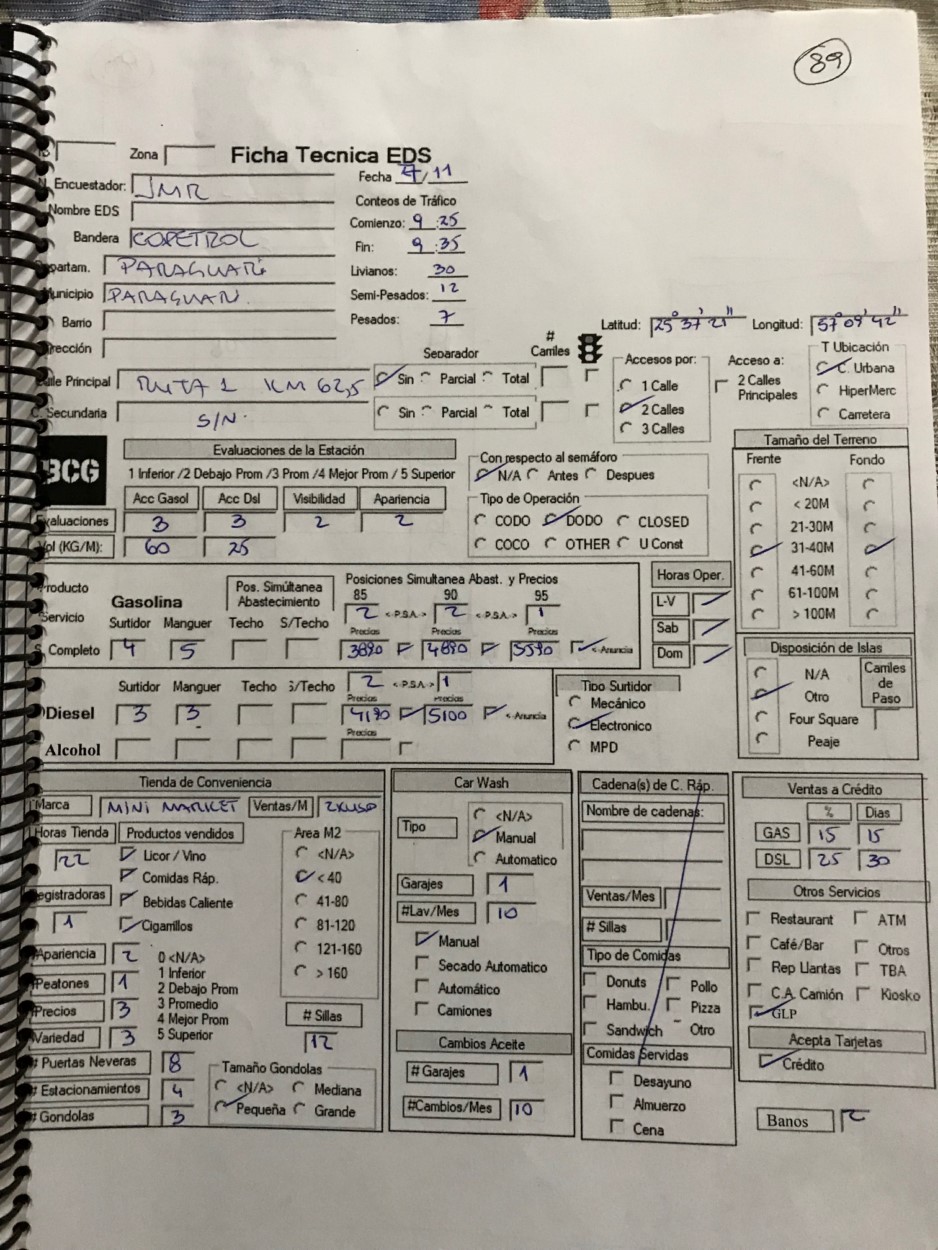 89
Zona
Ficha Tecnica EDS
Encuestador: JMR
Fecha 7/11
Nombre EDS
Conteos de Tráfico
Bandera COPETROL
Comienzo: 9:25
Fin: 9:35
Departam. PARAGUARI
Livianos: 30
Municipio PARAGUARI
Semi-Pesados: 12
Barrio
Pesados: 7
Latitud: 25° 37' 21" Longitud: 57° 09' 42"
Dirección
Calle Principal RUTA 1 KM 62,5
C. Secundaria S/N.
Separador
# Carriles
Sin Parcial Total
Sin Parcial Total
Accesos por:
1 Calle
2 Calles
3 Calles
Acceso a:
2 Calles Principales
T Ubicación
C. Urbana
HiperMerc
Carretera
BCG
Evaluaciones de la Estación
1 Inferior /2 Debajo Prom /3 Prom /4 Mejor Prom / 5 Superior
Acc Gasol Acc Dsl Visibilidad Apariencia
Evaluaciones 3 3 2 2
Vol (KG/M): 60 25
Con respecto al semáforo
N/A Antes Despues
Tipo de Operación
CODO DODO CLOSED
COCO OTHER U Const
Tamaño del Terreno
Frente Fondo
<N/A>
< 20M
21-30M
31-40M
41-60M
61-100M
> 100M
Producto
Servicio
S. Completo
Gasolina
Pos. Simúltanea Abastecimiento
Surtidor Manguer Techo S/Techo
4 5
Posiciones Simultanea Abast. y Precios
85 90 95
2 <-P.S.A.-> 2 <-P.S.A.-> 1
Precios Precios Precios
3890 4890 5590 <-Anuncia
Horas Oper.
L-V
Sab
Dom
Diesel
Surtidor Manguer Techo S/Techo
3 3
2 <-P.S.A.-> 1
Precios Precios
4190 5100 <-Anuncia
Alcohol
Precios
Tipo Surtidor
Mecánico
Electronico
MPD
Disposición de Islas
N/A
Otro
Four Square
Peaje
Carriles de Paso
Tienda de Conveniencia
Marca MINI MARKET Ventas/M 2KUSD
Horas Tienda 22
Productos vendidos
Licor / Vino
Comidas Ráp.
Bebidas Caliente
Cigarrillos
Registradoras 1
Area M2
<N/A>
< 40
41-80
81-120
121-160
> 160
Apariencia 2
Peatones 1
Precios 3
Variedad 3
0 <N/A>
1 Inferior
2 Debajo Prom
3 Promedio
4 Mejor Prom
5 Superior
# Sillas
12
# Puertas Neveras 8
# Estacionamientos 4
# Gondolas 3
Tamaño Gondolas
<N/A> Mediana
Pequeña Grande
Car Wash
Tipo
<N/A>
Manual
Automatico
Garajes 1
#Lav/Mes 10
Manual
Secado Automatico
Automático
Camiones
Cambios Aceite
# Garajes 1
#Cambios/Mes 10
Cadena(s) de C. Ráp.
Nombre de cadenas:
Ventas/Mes
# Sillas
Tipo de Comidas
Donuts Pollo
Hambu. Pizza
Sandwich Otro
Comidas Servidas
Desayuno
Almuerzo
Cena
Ventas a Crédito
% Dias
GAS 15 15
DSL 25 30
Otros Servicios
Restaurant ATM
Café/Bar Otros
Rep Llantas TBA
C.A. Camión Kiosko
GLP
Acepta Tarjetas
Crédito
Banos 2